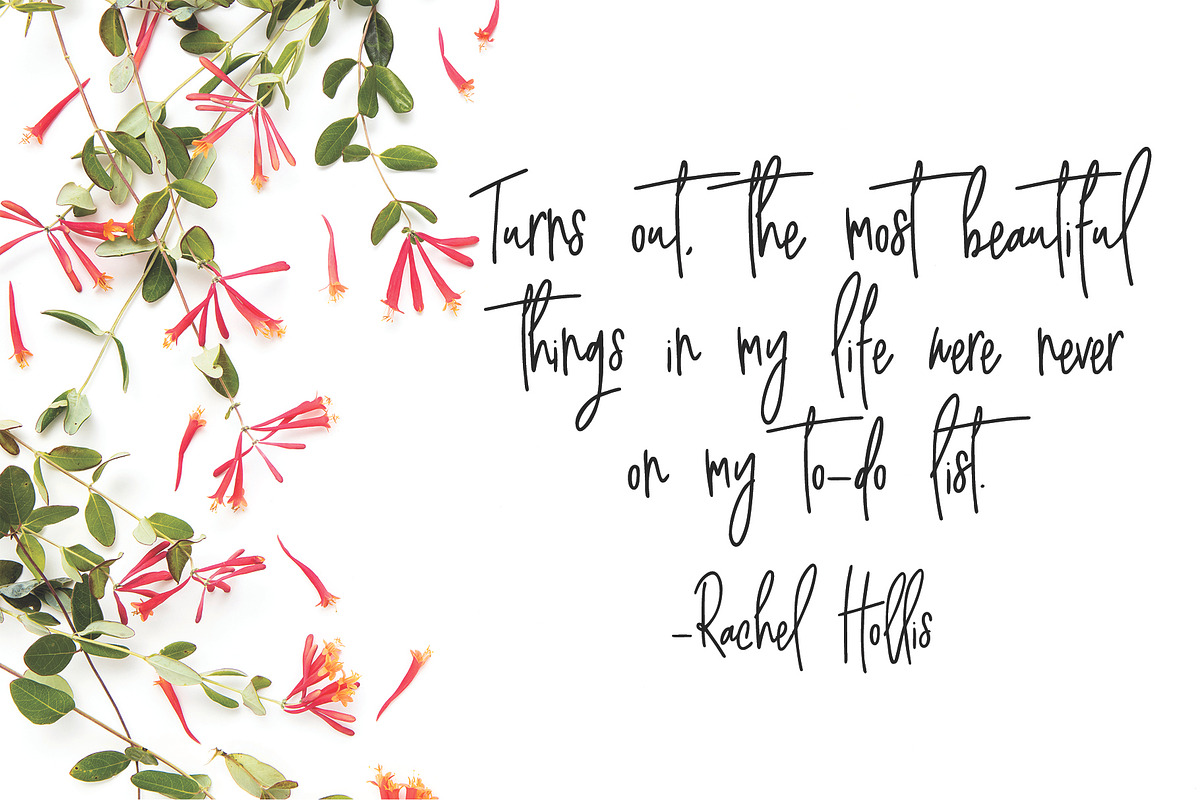 Turns out, the most beautiful
things in my life were never
on my to-do list.
-Rachel Hollis